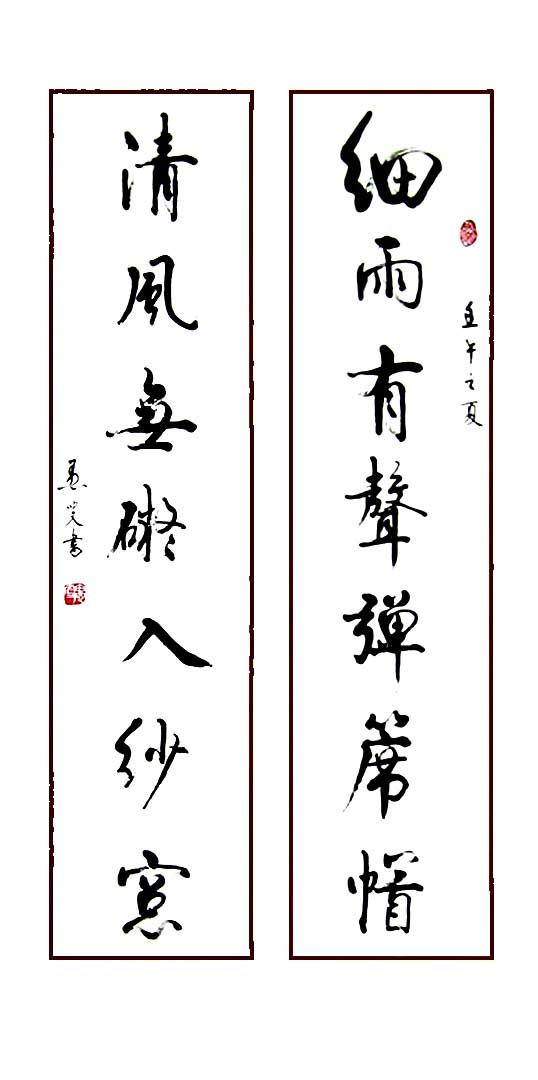 細雨有聲彈蓆帽
壬午之夏
清風無礙入紗窓
書